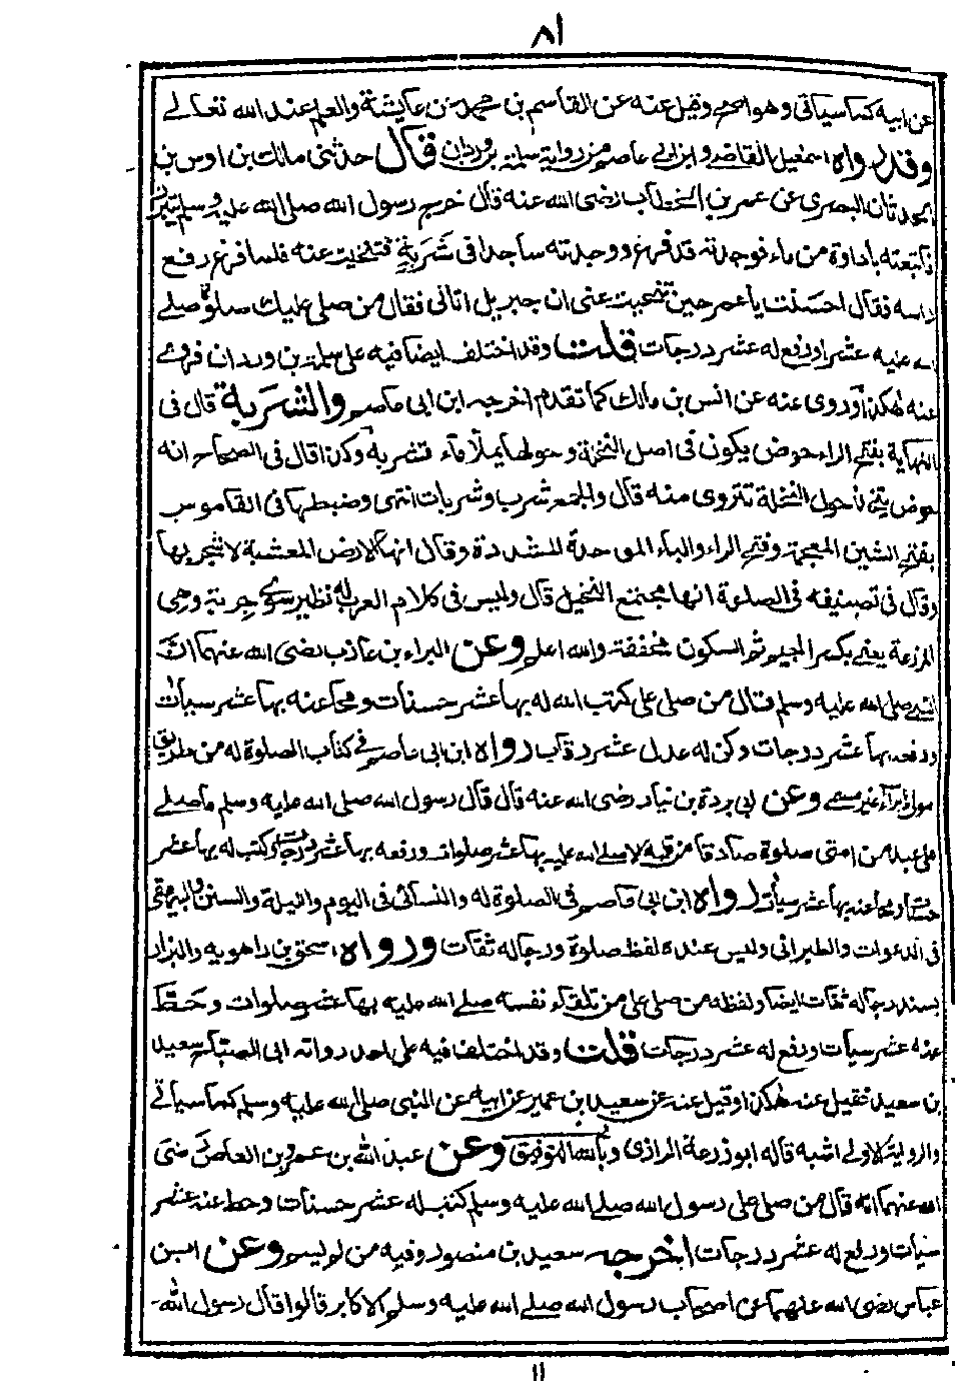 ٨١
عن ابيه كما سياتى وهو اصح وقيل عنه عن القاسم بن محمد عن عايشة والعلم عند الله تعالے
وقد رواه اسمعيل القاضے وابن ابى عاصم من رواية سلمة بن وردان قال حدثنى مالك بن اوس بن
الحدثان البصرى عن عمر بن الخطاب رضى الله عنه قال خرج رسول الله صلى الله عليه وسلم يتبرز
فاتبعته باداوة من ماء فوجدته قد فرغ ووجدته ساجدا فى شَرَبةٍ فتنحيت عنه فلما فرغ رفع
راسه فقال احسنت يا عمر حين تنحيت عنى ان جبريل اتانى فقال من صلى عليك صلوة صلے
الله عليه عشرا ورفع له عشر درجات قلت وقد اختلف ايضا فيه على سلمة بن وردان فروے
عنه هكذا وروى عنه عن انس بن مالك كما تقدم اخرجه ابن ابى عاصم والشَرَبة قال فى
النهاية بفتح الراء حوض يكون فى اصل النخلة وحولها يملأ ماء تشربه وكذا قال فى الصحاح انه
حوض يتخذ حول النخلة تتروى منه قال والجمع شرب وشربات انتهى وضبطها فى القاموس
بفتح الشين المعجمة وفتح الراء والباء الموحدة المشددة وقال انها الارض المعشبة لا شجر بها
وقال فى تصنيفه فى الصلوة انها مجتمع النخيل قال وليس فى كلام العرب له نظير سوے جربة وهى
المزرعة يعنى بكسر الجيم ثم السكون مخففة والله اعلم وعن البراء بن عازب رضى الله عنهما ان
النبى صلى الله عليه وسلم قال من صلى على كتب الله له بها عشر حسنات ومحا عنه بها عشر سيأت
ورفعه بها عشر درجات وكن له عدل عشر رقاب رواه ابن ابى عاصم فے كتاب الصلوة له من طريق
مولى البراء غير مسمى وعن ابى بردة بن نيار رضى الله عنه قال قال رسول الله صلى الله عليه وسلم ما صلے
على عبد من امتى صلوة صادقا من قلبه الا صلے الله عليه بها عشر صلوات ورفعه بها عشر درجات وكتب له بها عشر
حسنات ومحا عنه بها عشر سيأت رواه ابن ابى عاصم فى الصلوة له والنسائى فى اليوم والليلة والسنن والبيهقى
فى الدعوات والطبرانى وليس عنده لفظ صلوة ورجاله ثقات ورواه اسحق بن راهويه والبزار
بسند رجاله ثقات ايضا ولفظه من صلى على من تلقاء نفسه صلے الله عليه بها عشر صلوات وحَطَّ
عنه عشر سيأت ورفع له عشر درجات قلت وقد اختلف فيه على احد رواته ابى الصباح سعيد
بن سعيد فقيل عنه هكذا وقيل عنه عن سعيد بن عمير عن ابيه عن النبى صلى الله عليه وسلم كما سياتے
والرواية الاولے اشبه قاله ابو زرعة الرازى وبالله التوفيق وعن عبد الله بن عمرو بن العاص رضى
الله عنهما انه قال من صلى على رسول الله صلے الله عليه وسلم كتب له عشر حسنات وحط عنه عشر
سيأت ورفع له عشر درجات اخرجه سعيد بن منصور وفيه من لم يسم وعن ابن
عباس رضى الله عنهما عن اصحاب رسول الله صلے الله عليه وسلم الاكابر قالوا قال رسول الله
١١